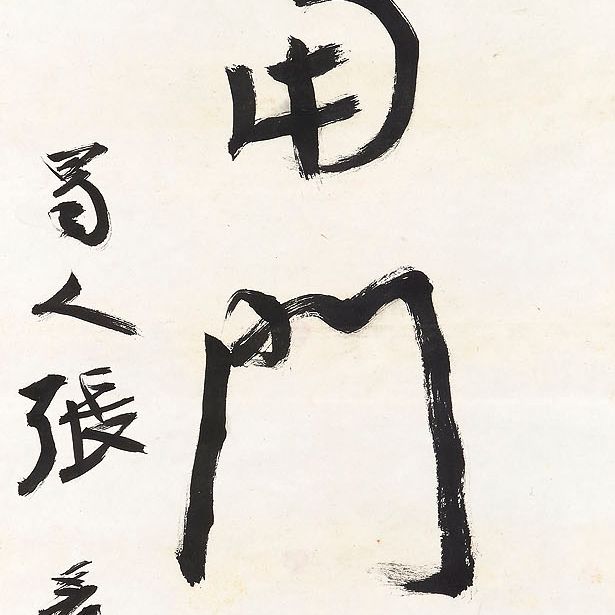 門
蜀人張